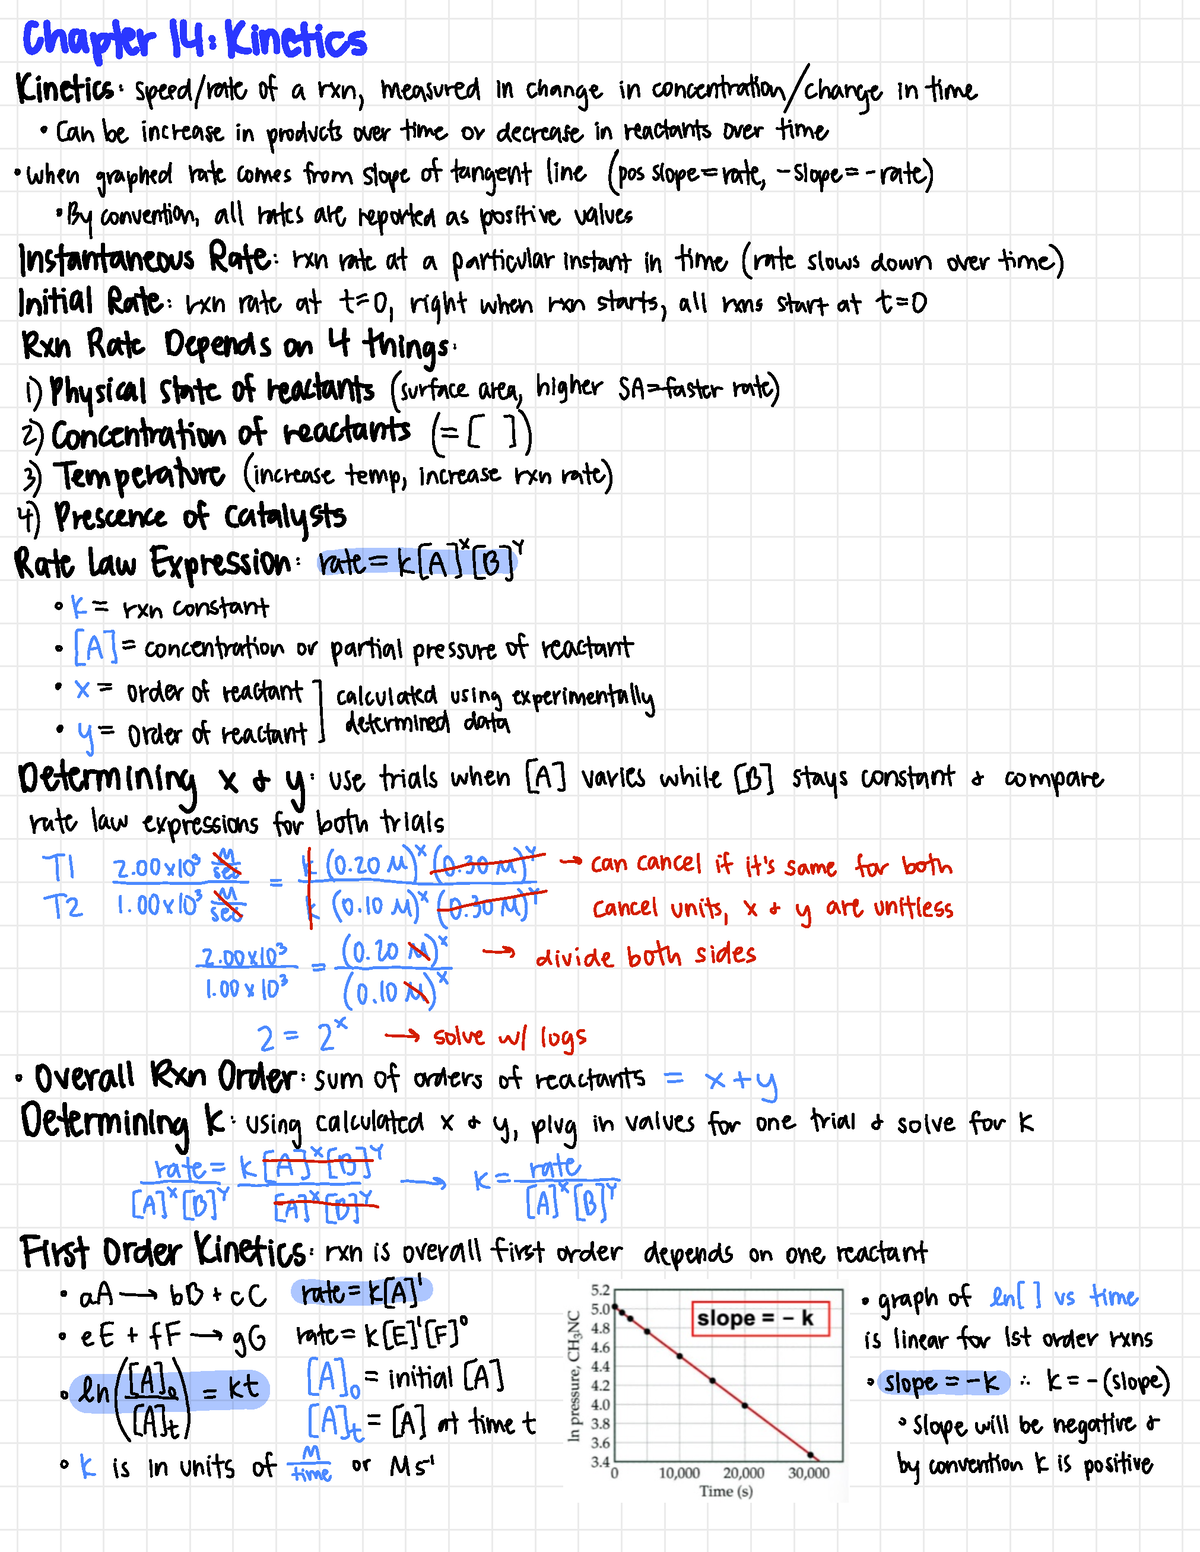 Chapter 14: Kinetics
Kinetics: speed/rate of a rxn, measured in change in concentration/change in time
• Can be increase in products over time or decrease in reactants over time
• When graphed rate comes from slope of tangent line (pos slope=rate, -slope=-rate)
• By convention, all rates are reported as positive values
Instantaneous Rate: rxn rate at a particular instant in time (rate slows down over time)
Initial Rate: rxn rate at t=0, right when rxn starts, all rxns start at t=0
Rxn Rate Depends on 4 things:
1) Physical State of reactants (surface area, higher SA=faster rate)
2) Concentration of reactants (=[ ])
3) Temperature (increase temp, increase rxn rate)
4) Prescence of Catalysts
Rate Law Expression: rate = k[A]^x[B]^y
• K = rxn constant
• [A] = concentration or partial pressure of reactant
• x = order of reactant ] calculated using experimentally
• y = order of reactant ] determined data
Determining x & y: use trials when [A] varies while [B] stays constant & compare
rate law expressions for both trials
T1 2.00x10³ M/sec = k (0.20 M)^x (0.30 M)^y → can cancel if it's same for both
T2 1.00x10³ M/sec k (0.10 M)^x (0.30 M)^y cancel units, x & y are unitless
2.00x10³ = (0.20 M)^x → divide both sides
1.00x10³ (0.10 M)^x
2 = 2^x → solve w/ logs
• Overall Rxn Order: sum of orders of reactants = x+y
Determining K: using calculated x & y, plug in values for one trial & solve for K
rate = k[A]^x[B]^y → k = rate
[A]^x[B]^y [A]^x[B]^y [A]^x[B]^y
First Order Kinetics: rxn is overall first order depends on one reactant
• aA → bB + cC rate = k[A]¹
• eE + fF → gG rate = k[E]¹[F]⁰
• ln([A]₀/[A]t) = kt [A]₀ = initial [A]
[A]t = [A] at time t
• K is in units of M/time or Ms⁻¹
ln pressure, CH₃NC
5.2
5.0
4.8
4.6
4.4
4.2
4.0
3.8
3.6
3.4
slope = – k
0 10,000 20,000 30,000
Time (s)
• graph of ln[ ] vs time
is linear for 1st order rxns
• slope = -k ∴ k = -(slope)
• Slope will be negative &
by convention k is positive